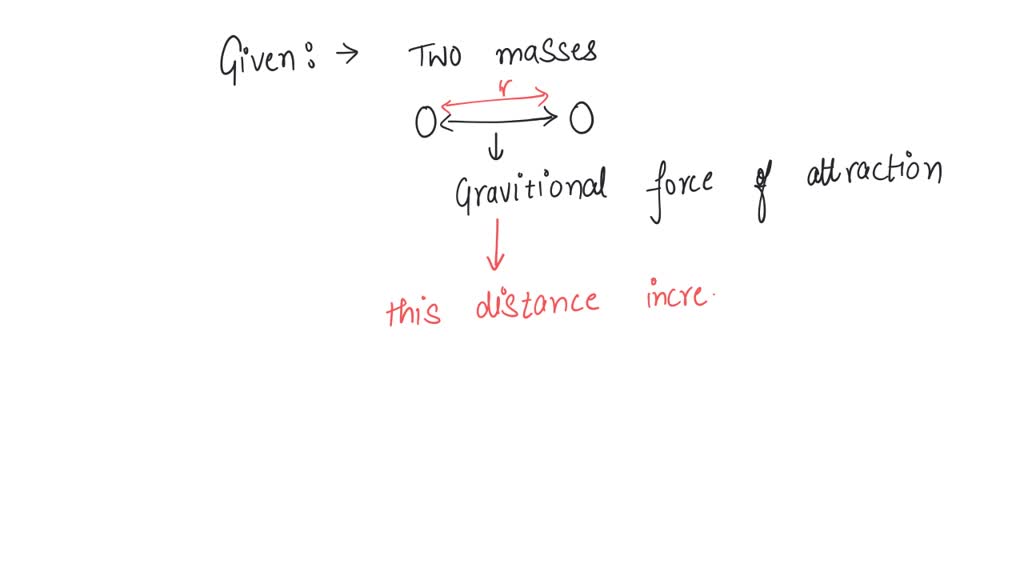 Given: → Two masses
r
Gravitional force of attraction
this distance incre.